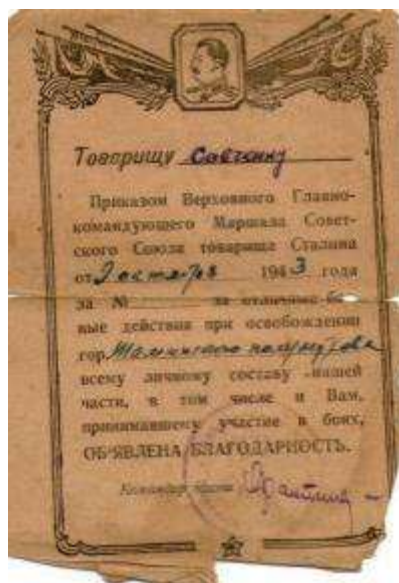 Товарищу Савченку
Приказом Верховного Главно-
командующего Маршала Совет-
ского Союза товарища Сталина
от 9 октября 1943 года
за № за отличные бо-
вые действия при освобождении
гор. Таманского полуострова
всему личному составу нашей
части, в том числе и Вам,
принимавшему участие в боях,
ОБ'ЯВЛЕНА БЛАГОДАРНОСТЬ.
Командир части